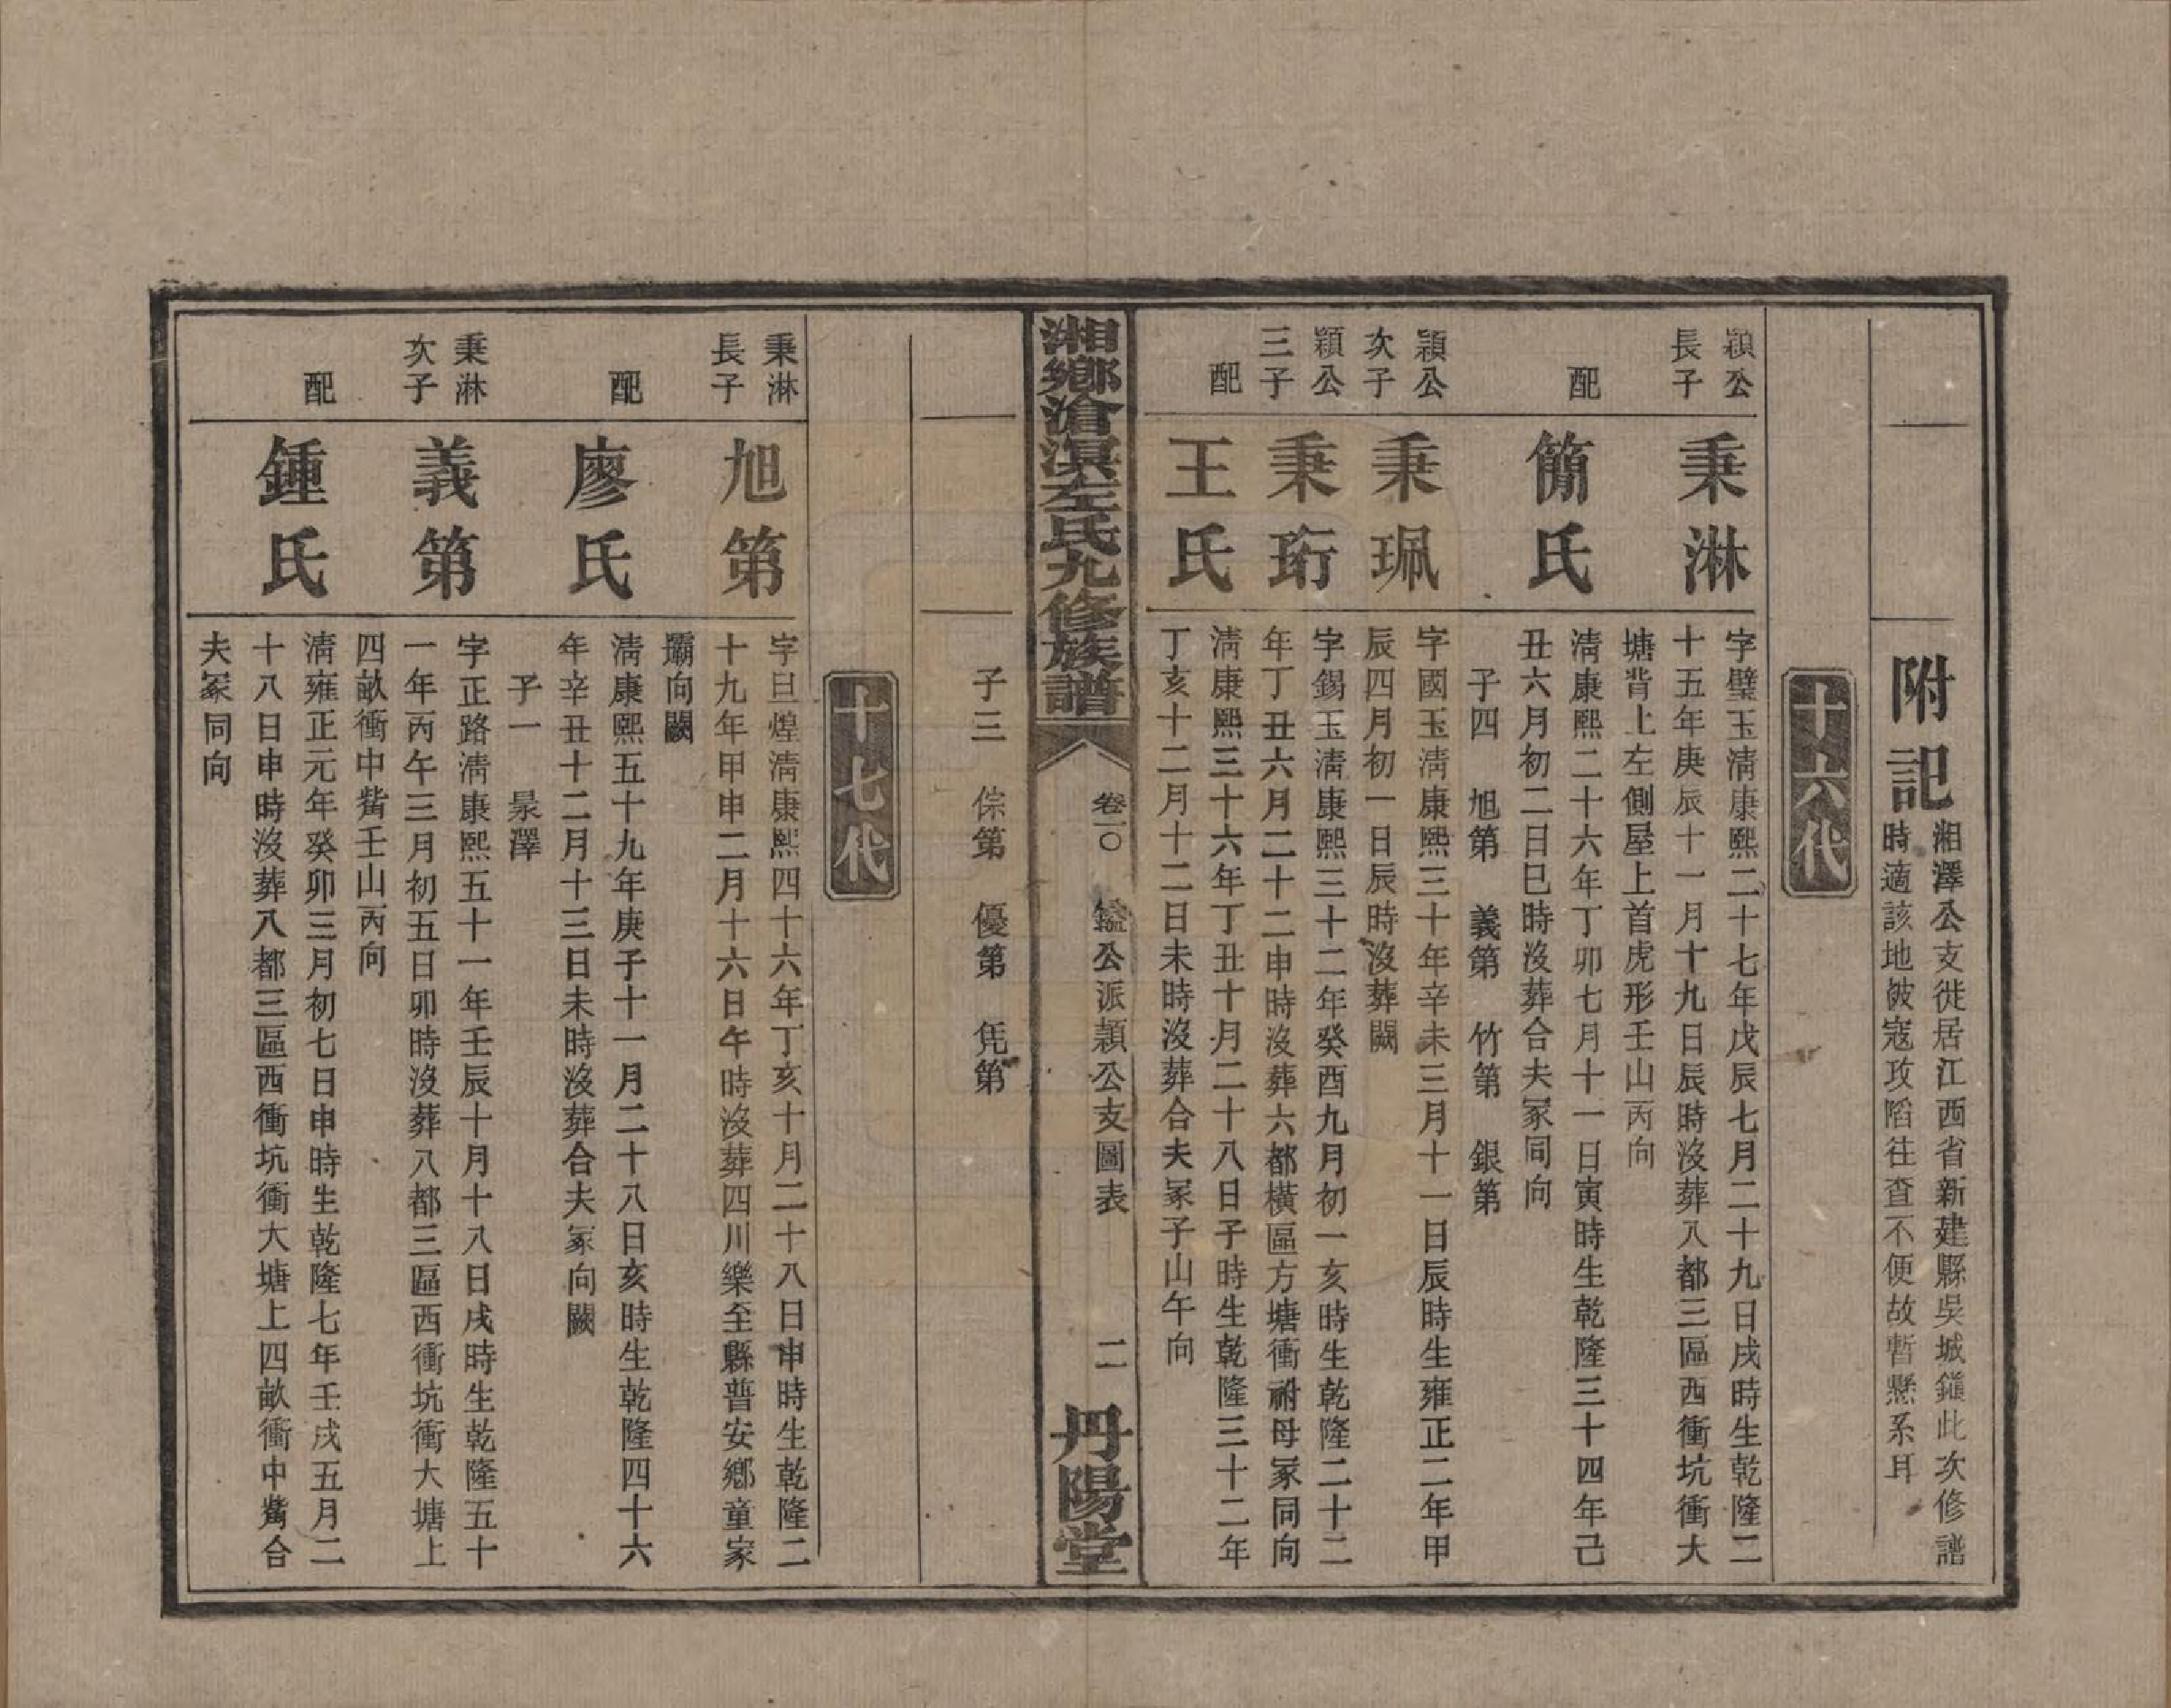 附記
湘澤公支徙居江西省新建縣吳城鎮此次修譜
時適該地被寇攻陷往查不便故暫懸系耳
十六代
穎公
長子
秉淋
字璧玉淸康熙二十七年戊辰七月二十九日戌時生乾隆二
十五年庚辰十一月十九日辰時沒葬八都三區西衝坑衝大
塘背上左側屋上首虎形壬山丙向
配
簡氏
淸康熙二十六年丁卯七月十一日寅時生乾隆三十四年己
丑六月初二日巳時沒葬合夫冢同向
子四　旭第　義第　竹第　銀第
穎公
次子
秉珮
字國玉淸康熙三十年辛未三月十一日辰時生雍正二年甲
辰四月初一日辰時沒葬闕
穎公
三子
秉珩
字錫玉淸康熙三十二年癸酉九月初一亥時生乾隆二十二
年丁丑六月二十二申時沒葬六都橫區方塘衝祔母冢同向
配
王氏
淸康熙三十六年丁丑十月二十八日子時生乾隆三十二年
丁亥十二月十二日未時沒葬合夫冢子山午向
湘鄉滄溟左氏九修族譜
卷一〇
鎰公派穎公支圖表
二
丹陽堂
子三　倧第　優第　凭第
十七代
秉淋
長子
旭第
字旦煌淸康熙四十六年丁亥十月二十八日申時生乾隆二
十九年甲申二月十六日午時沒葬四川樂至縣普安鄉童家
壩向闕
配
廖氏
淸康熙五十九年庚子十一月二十八日亥時生乾隆四十六
年辛丑十二月十三日未時沒葬合夫冢向闕
子一　泉澤
秉淋
次子
義第
字正路淸康熙五十一年壬辰十月十八日戌時生乾隆五十
一年丙午三月初五日卯時沒葬八都三區西衝坑衝大塘上
四畝衝中觜壬山丙向
配
鍾氏
淸雍正元年癸卯三月初七日申時生乾隆七年壬戌五月二
十八日申時沒葬八都三區西衝坑衝大塘上四畝衝中觜合
夫冢同向